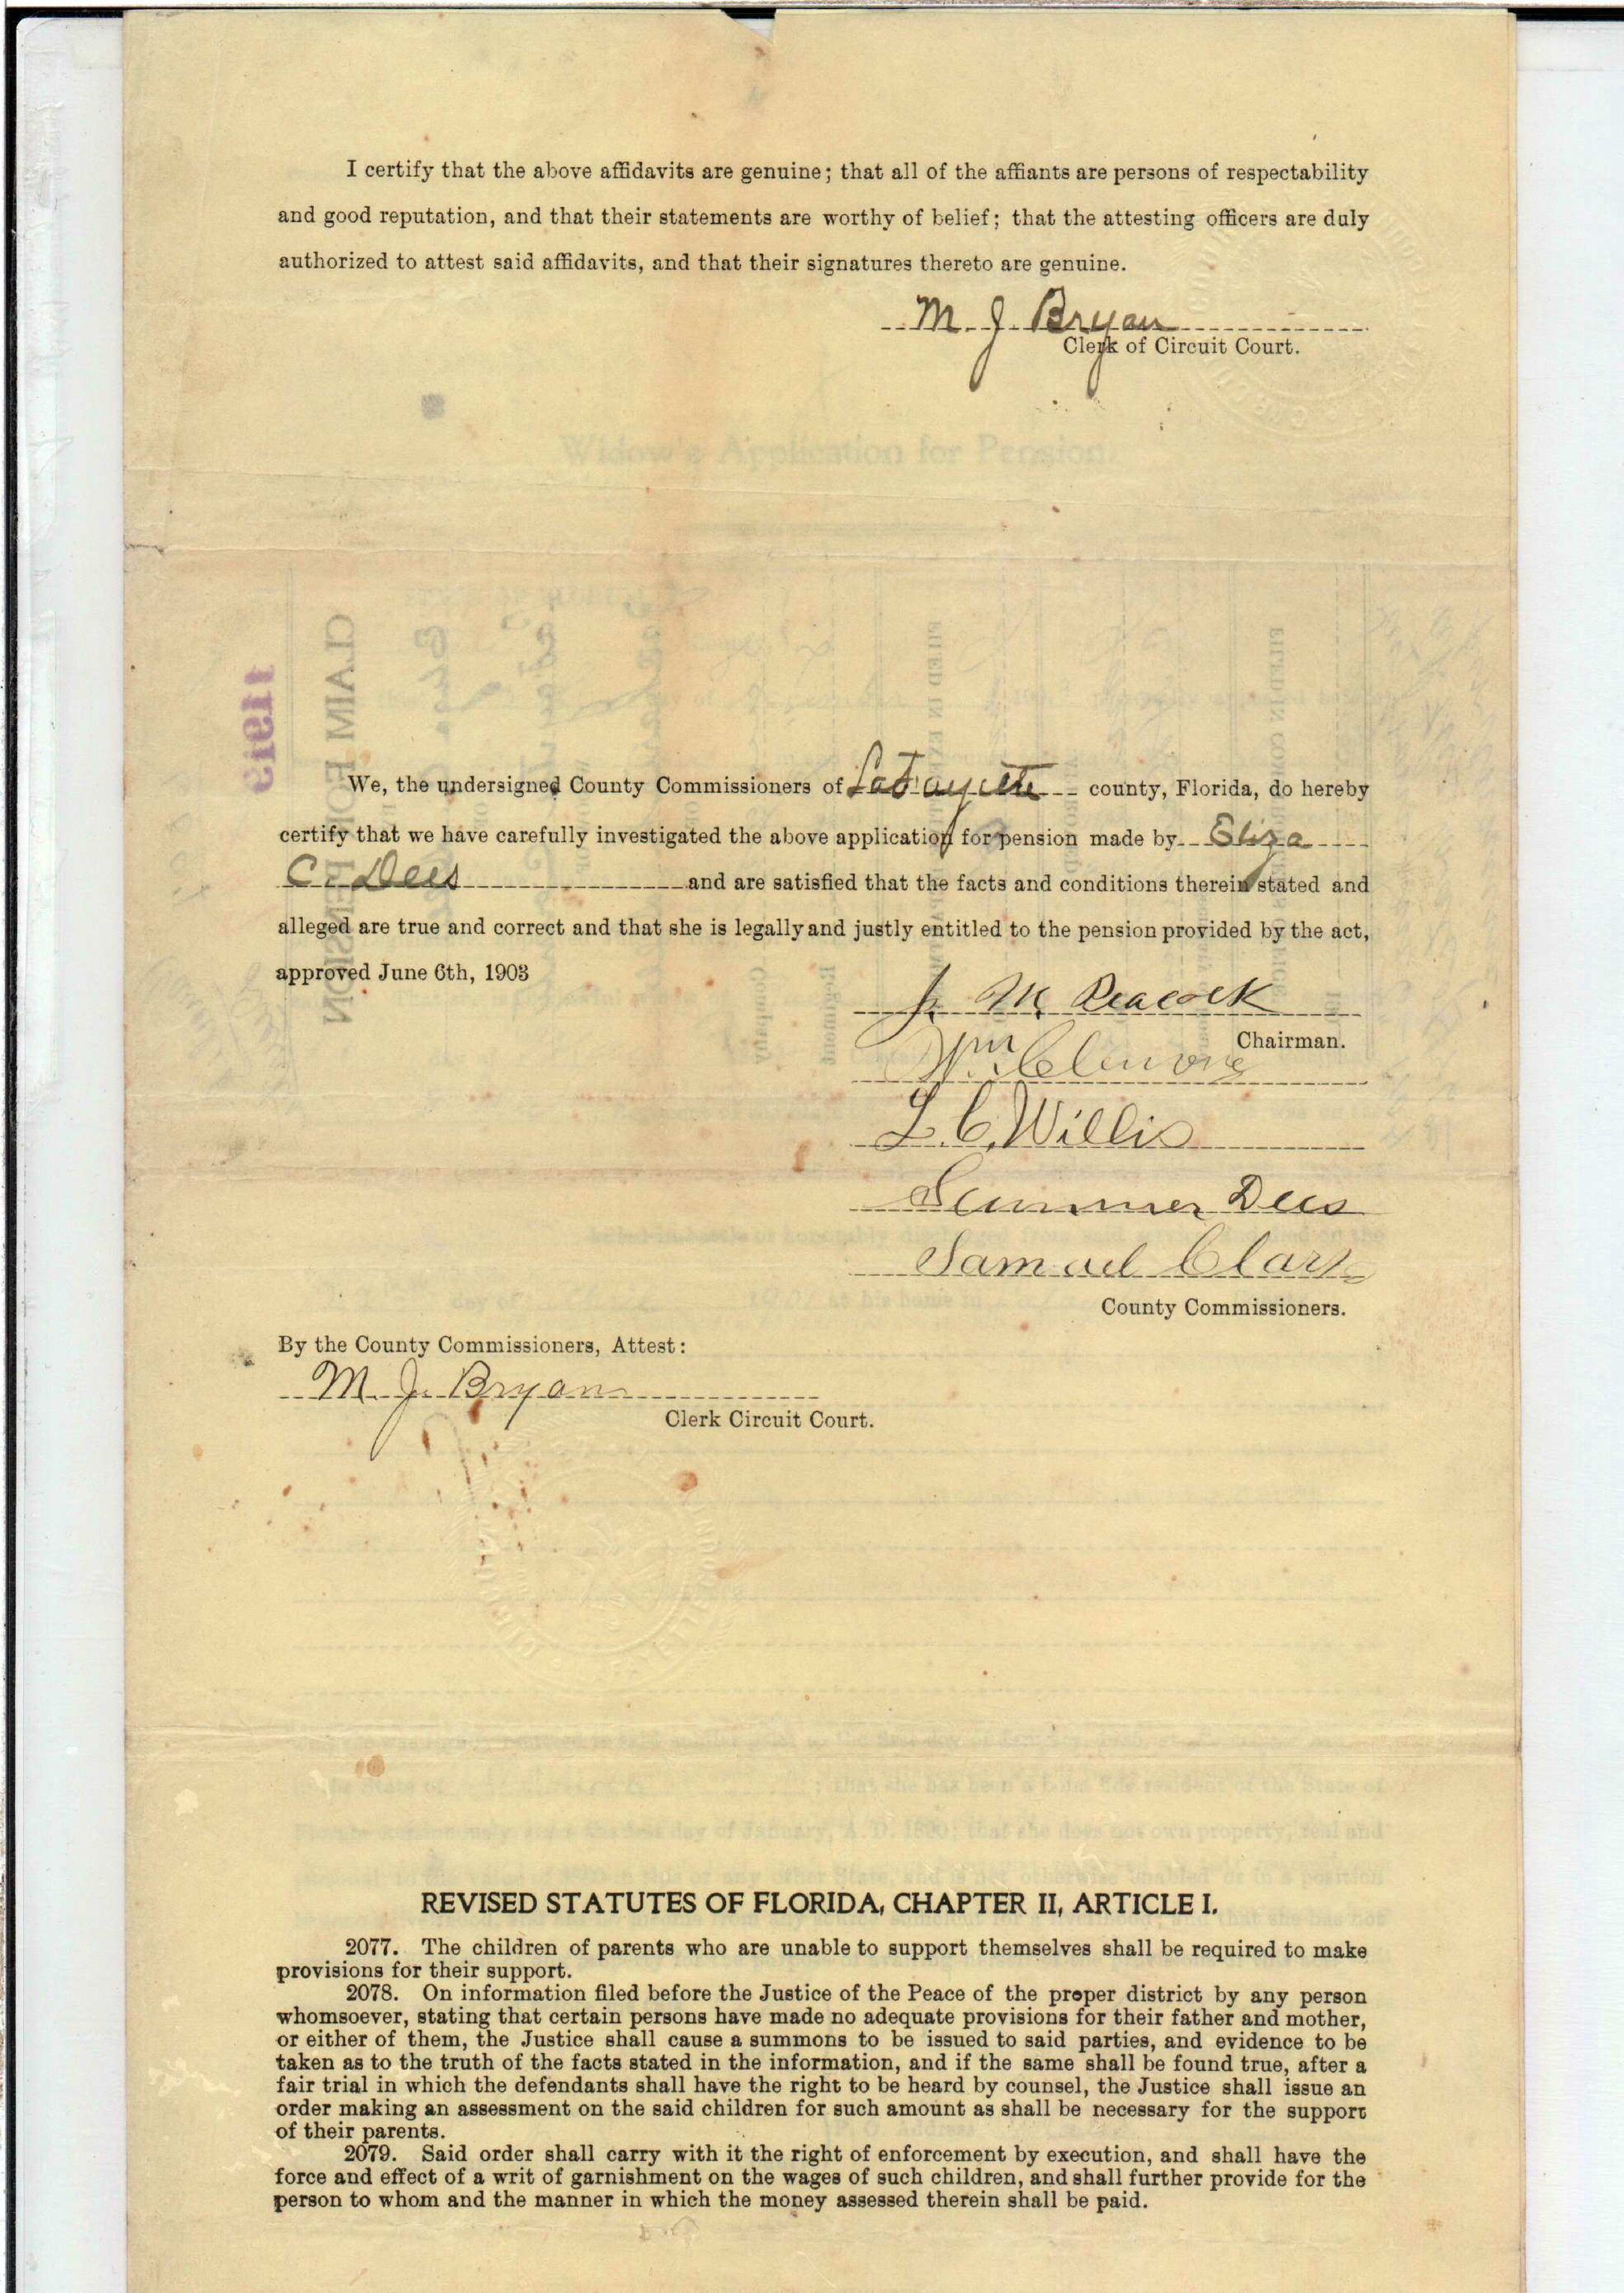 I certify that the above affidavits are genuine; that all of the affiants are persons of respectability
and good reputation, and that their statements are worthy of belief; that the attesting officers are duly
authorized to attest said affidavits, and that their signatures thereto are genuine.
M. J. Bryan
Clerk of Circuit Court.
Widow's Application for Pension.
CLAIM FOR PENSION
We, the undersigned County Commissioners of LaFayette county, Florida, do hereby
certify that we have carefully investigated the above application for pension made by Eliza
C. Dees and are satisfied that the facts and conditions therein stated and
alleged are true and correct and that she is legally and justly entitled to the pension provided by the act,
approved June 6th, 1903
J. M. Peacock
Chairman.
Wm
L. C. Willis
Summer Dees
Samuel Clark
County Commissioners.
By the County Commissioners, Attest:
M. J. Bryan
Clerk Circuit Court.
REVISED STATUTES OF FLORIDA, CHAPTER II, ARTICLE I.
2077. The children of parents who are unable to support themselves shall be required to make
provisions for their support.
2078. On information filed before the Justice of the Peace of the proper district by any person
whomsoever, stating that certain persons have made no adequate provisions for their father and mother,
or either of them, the Justice shall cause a summons to be issued to said parties, and evidence to be
taken as to the truth of the facts stated in the information, and if the same shall be found true, after a
fair trial in which the defendants shall have the right to be heard by counsel, the Justice shall issue an
order making an assessment on the said children for such amount as shall be necessary for the support
of their parents.
2079. Said order shall carry with it the right of enforcement by execution, and shall have the
force and effect of a writ of garnishment on the wages of such children, and shall further provide for the
person to whom and the manner in which the money assessed therein shall be paid.